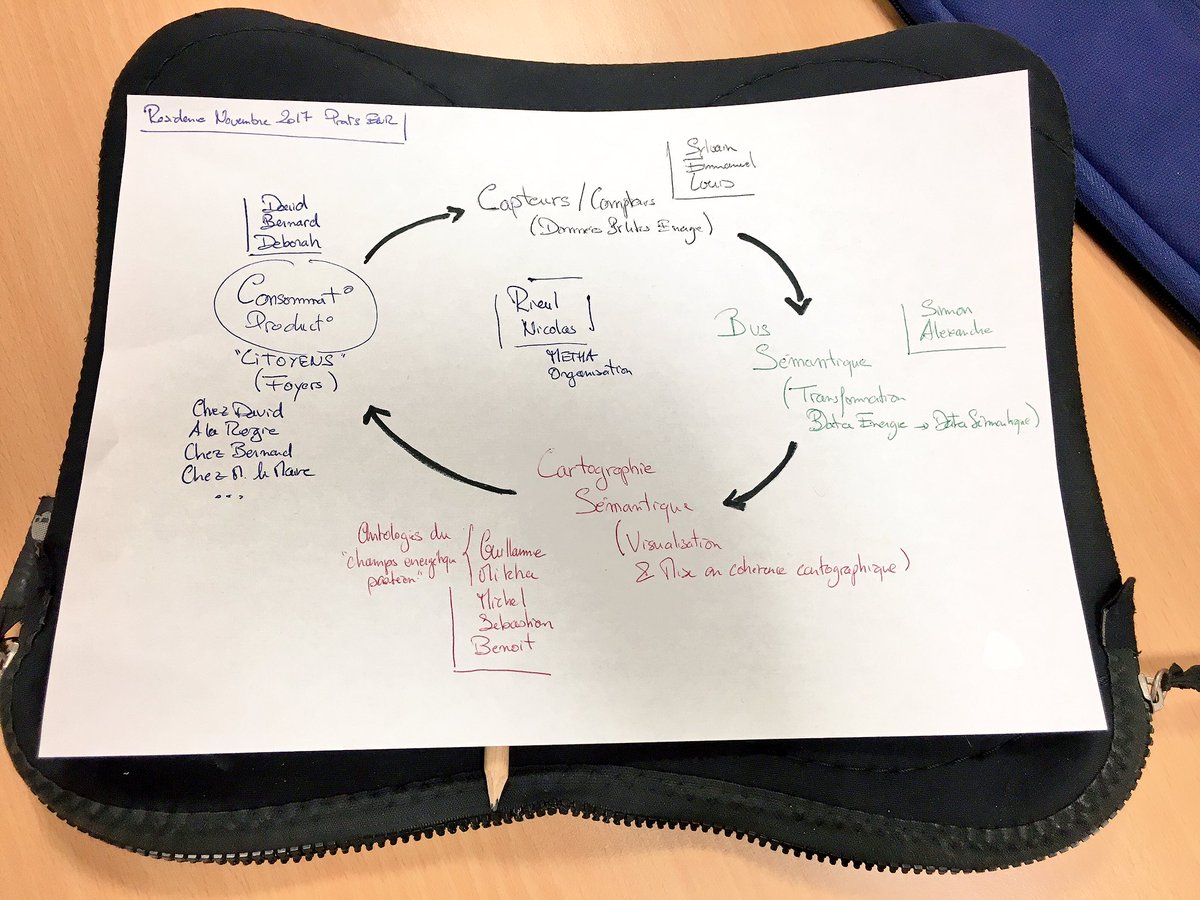 Residence Novembre 2017 Prats EnR
Sylvain
Emmanuel
Louis
Capteurs / Compteurs
(Données Brutes Energie)
David
Bernard
Deborah
Consommat°
Product°
"CITOYENS"
(Foyers)
Chez David
A la Regie
Chez Bernard
Chez M. le Maire
...
Rieul
Nicolas
METHA
Organisation
Simon
Alexandre
Bus
Sémantique
(Transformation
Data Energie → Data Sémantique)
Cartographie
Sémantique
(Visualisation
& Mise en coherence cartographique)
Ontologies du
"champs energétique
pratéen"
Guillaume
Mitcha
Michel
Sebastian
Benoit